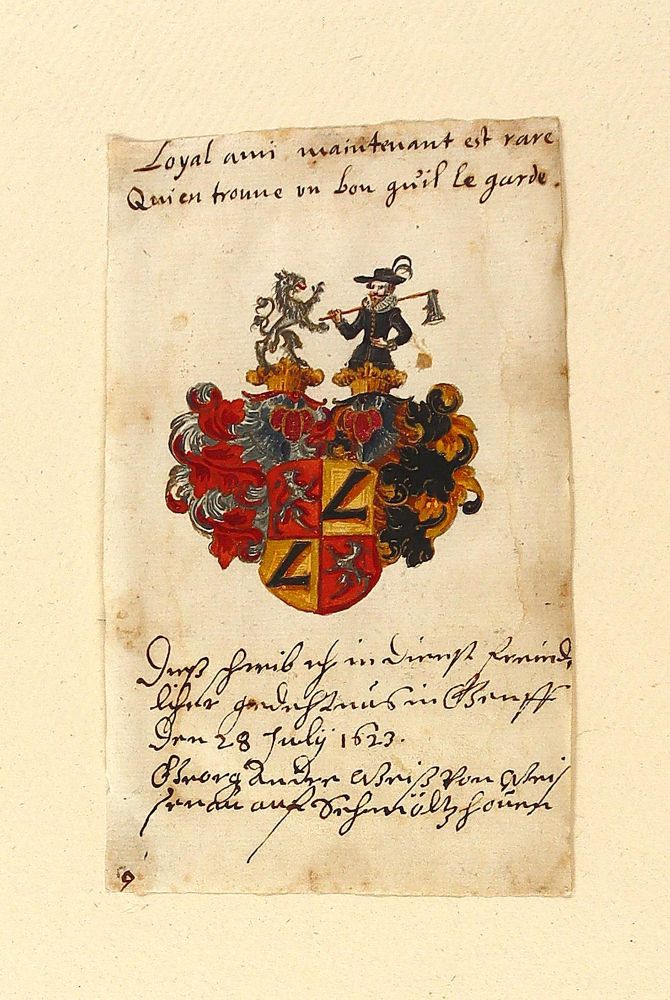 Loyal ami maintenant est rare
Qui en trouue vn bon qu'il le garde.
Dieß schreib ich in dienst freind,
licher gedechtnus in Genff
den 28 July 1623.
Georg Andre Weiß von Weis
senau auf Schmöltzhouen
9